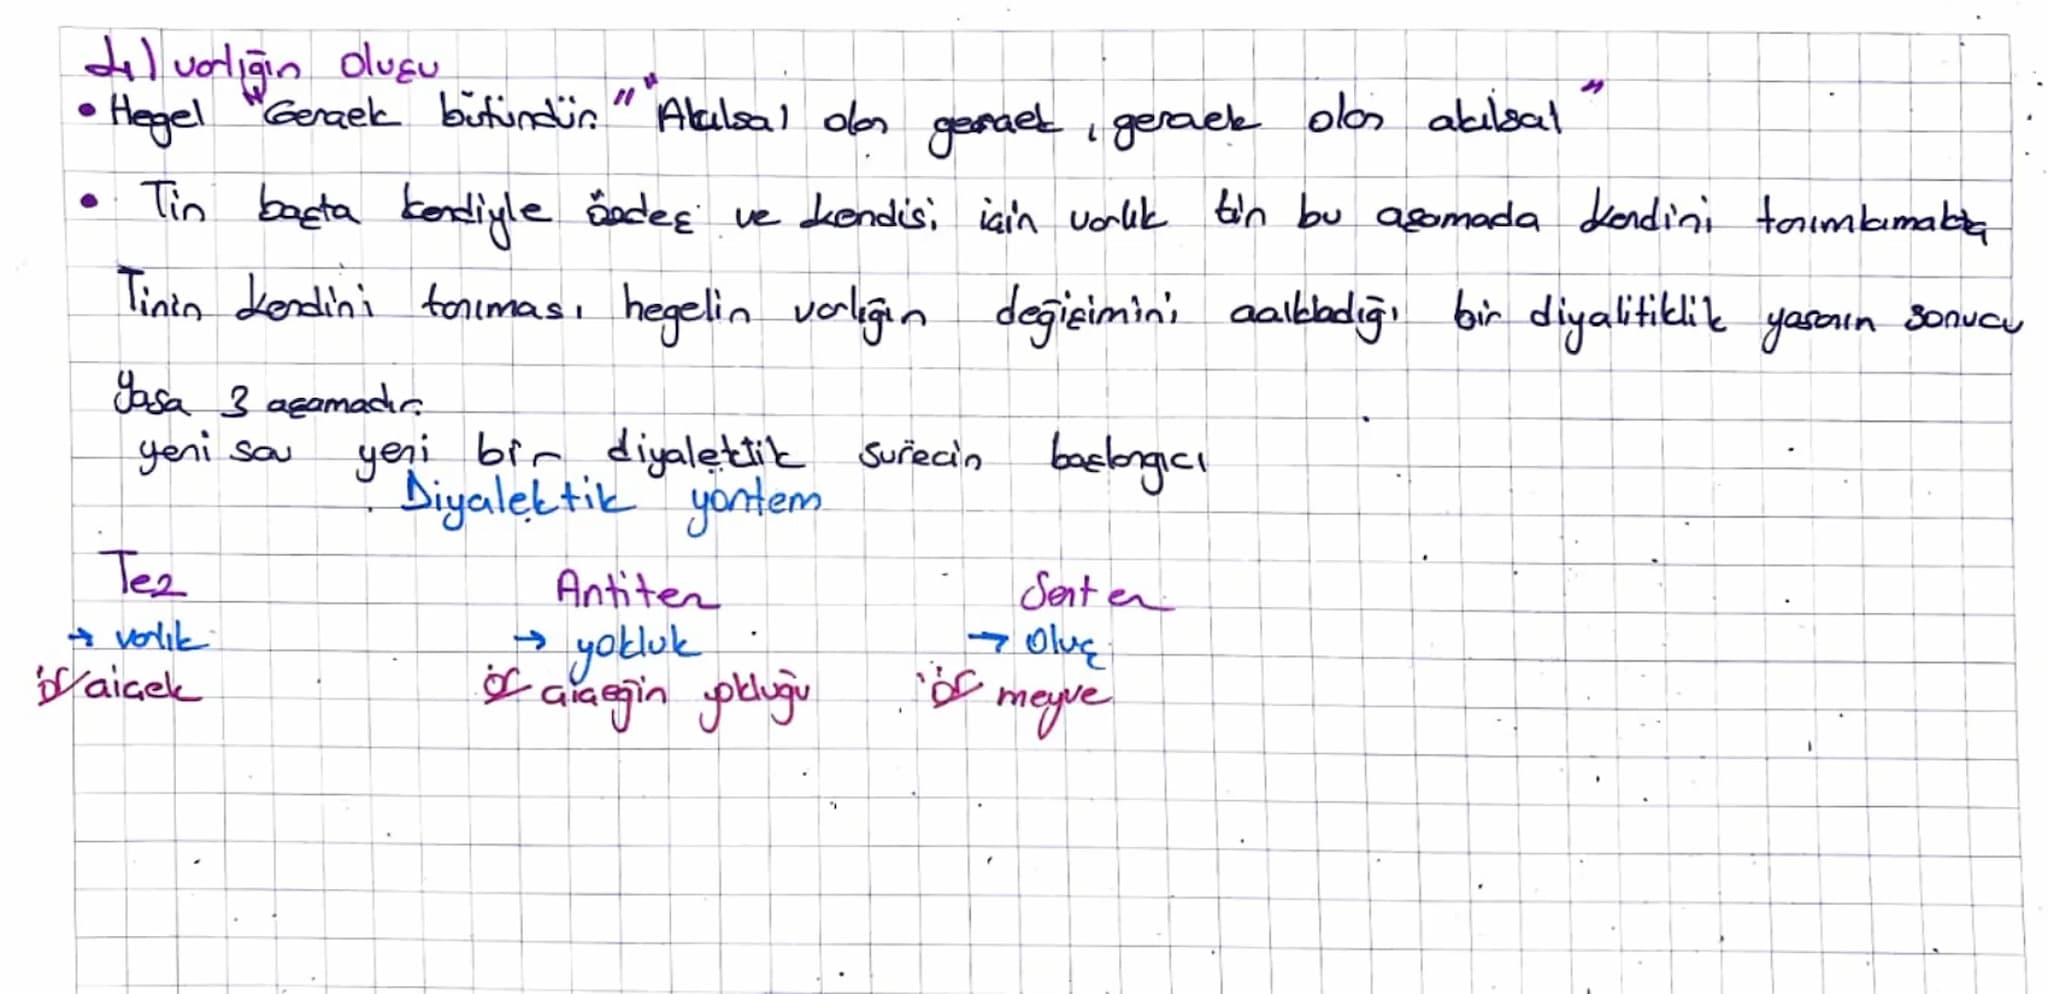 d) varlığın oluşu
• Hegel "Gerçek bütündür." "Akılsal olan gerçek, gerçek olan akılsal"
• Tin başta kendiyle özdeş ve kendisi için varlık tin bu aşamada kendini tanımlamakta
Tinin kendini tanıması hegelin varlığın değişimini açıkladığı bir diyalitiklik yasanın sonucu
Yasa 3 aşamadır.
yeni sav yeni bir diyalektik sürecin başlangıcı
Diyalektik yöntem
Tez Antitez Sentez
→ varlık → yokluk → oluş
ör/ çiçek ör çiçeğin yokluğu ör meyve